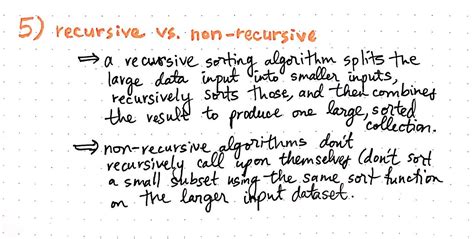 5) recursive vs. non-recursive
⇒ a recursive sorting algorithm splits the
large data input into smaller inputs,
recursively sorts those, and then combines
the result to produce one large, sorted
collection.
⇒ non-recursive algorithms don't
recursively call upon themselves (don't sort
a small subset using the same sort function
on the larger input dataset.